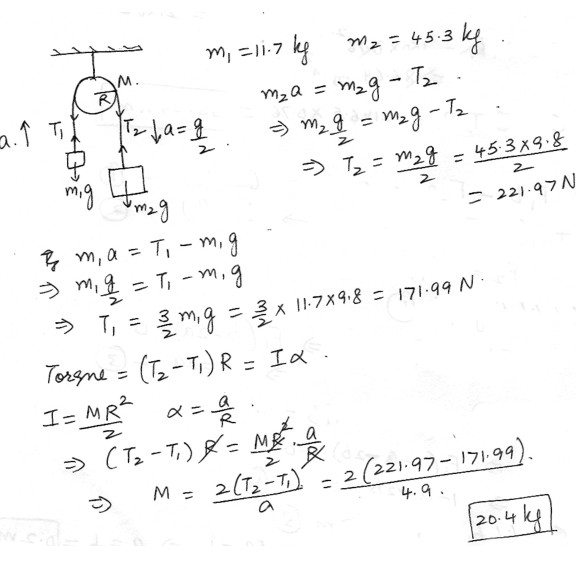 m₁ = 11.7 kg   m₂ = 45.3 kg.
M.
R
a.↑ T₁ T₂ ↓a = g/2
m₁g
m₂g
m₂a = m₂g - T₂.
⇒ m₂ g/2 = m₂g - T₂.
⇒ T₂ = m₂g/2 = 45.3×9.8/2
= 221.97 N
m₁a = T₁ - m₁g
⇒ m₁ g/2 = T₁ - m₁g
⇒ T₁ = 3/2 m₁g = 3/2 × 11.7×9.8 = 171.99 N.
Torque = (T₂-T₁) R = Iα.
I = MR²/2   α = a/R.
⇒ (T₂-T₁) R = MR²/2 · a/R
⇒ M = 2(T₂-T₁)/a = 2(221.97 - 171.99)/4.9.
20.4 kg